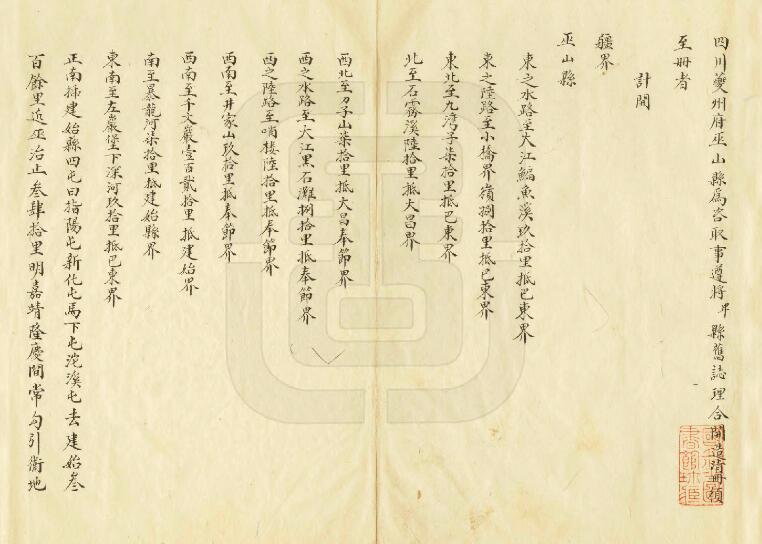 四川夔州府巫山縣爲咨取事遵將卑縣舊誌理合開造清冊須
至冊者
計開
疆界
巫山縣
東之水路至大江鯿魚溪玖拾里抵巴東界
東之陸路至小橋界嶺捌拾里抵巴東界
東北至九灣子柒拾里抵巴東界
北至石霧溪陸拾里抵大昌界
西北至刀子山柒拾里抵大昌奉節界
西之水路至大江黑石灘捌拾里抵奉節界
西之陸路至哨樓陸拾里抵奉節界
西南至井家山玖拾里抵奉節界
西南至千丈巖壹百貳拾里抵建始界
南至暴龍河柒拾里抵建始縣界
東南至左巖堡下深河玖拾里抵巴東界
正南插建始縣四屯曰指陽屯新化屯馬下屯沱溪屯去建始叁
百餘里近巫治止叁肆拾里明嘉靖隆慶間常勾引衛地